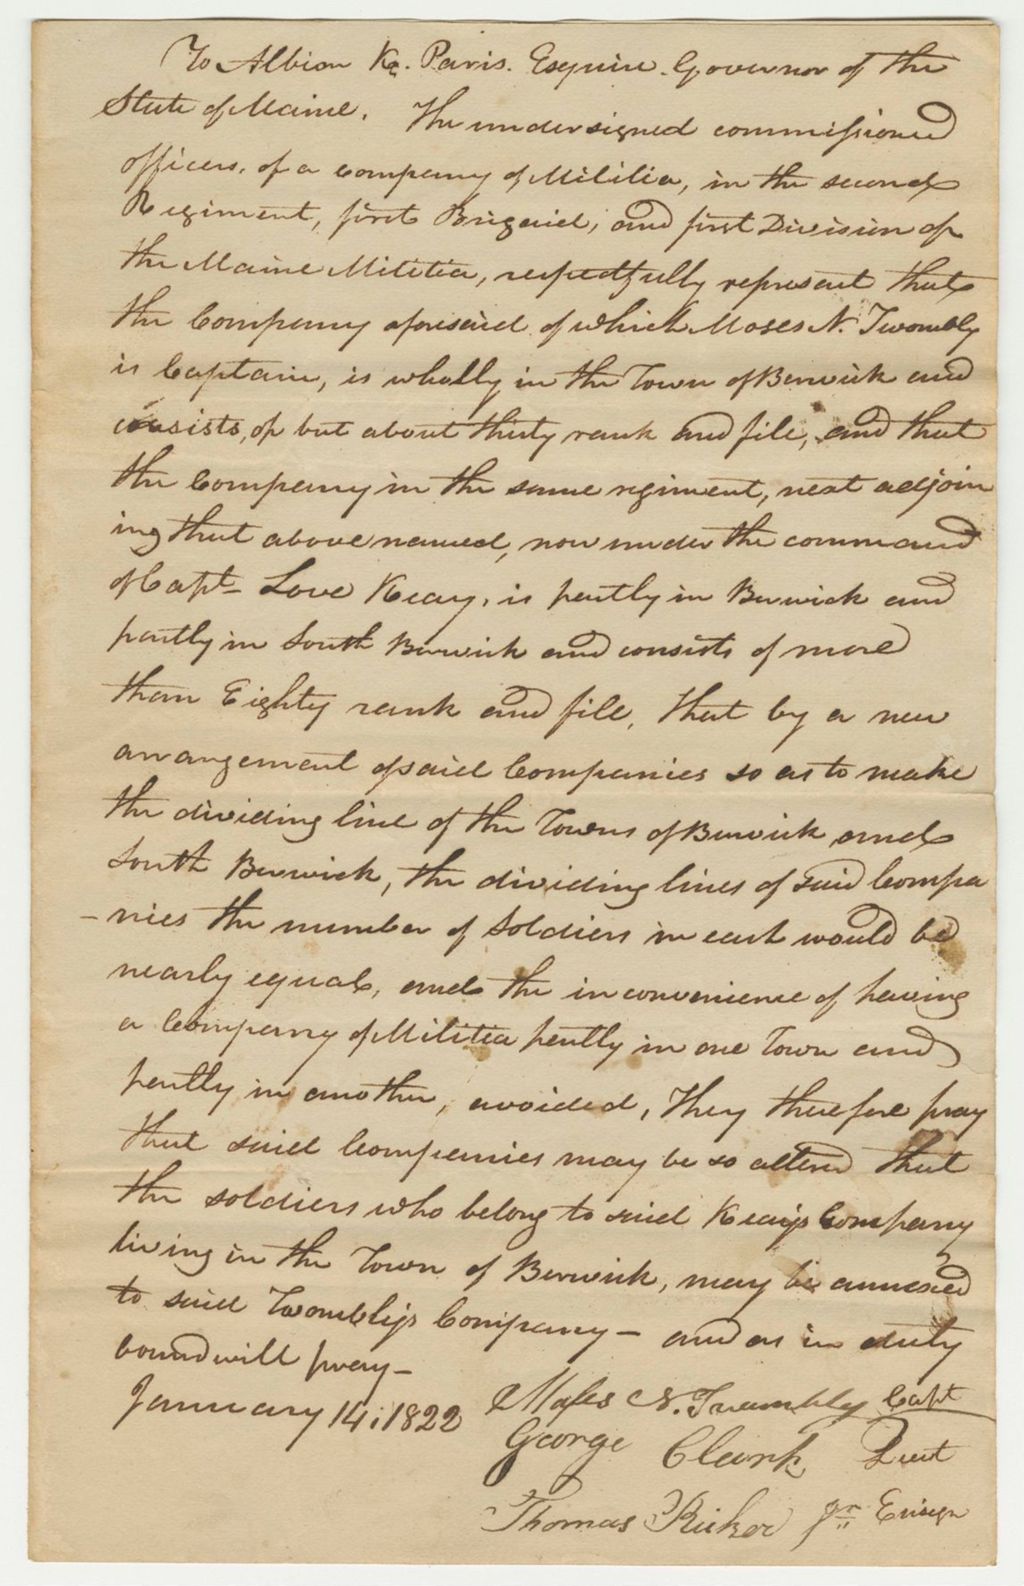 To Albion K. Paris. Esquire. Governor of the
State of Maine. The undersigned commissioned
officers, of a Company of Militia, in the second
Regiment, first Brigaid, and first Division of
the Maine Militia, respectfully represent that
the Company aforesaid of which Moses N. Twombly
is Captain, is wholly in the Town of Berwick and
consists, of but about thirty rank and file, and that
the Company in the same regiment, next adjoin
ing that above named, now under the command
of Capt- Love Keay, is partly in Berwick and
partly in South Berwick and consists of more
than Eighty rank and file, that by a new
arrangement of said Companies so as to make
the dividing line of the Towns of Berwick and
South Berwick, the dividing lines of said Compa
-nies the number of Soldiers in each would be
nearly equal, and the inconvenience of having
a Company of Militia partly in one Town and
partly in another, avoided, They therefore pray
that said Companies may be so altered that
the soldiers who belong to said Keays Company
living in the Town of Berwick, may be annexed
to said Twomblys Company- and as in duty
bound will pray-
January 14, 1822
Moses N. Twombly Capt
George Clark Lieut
Thomas Ricker jr Ensign